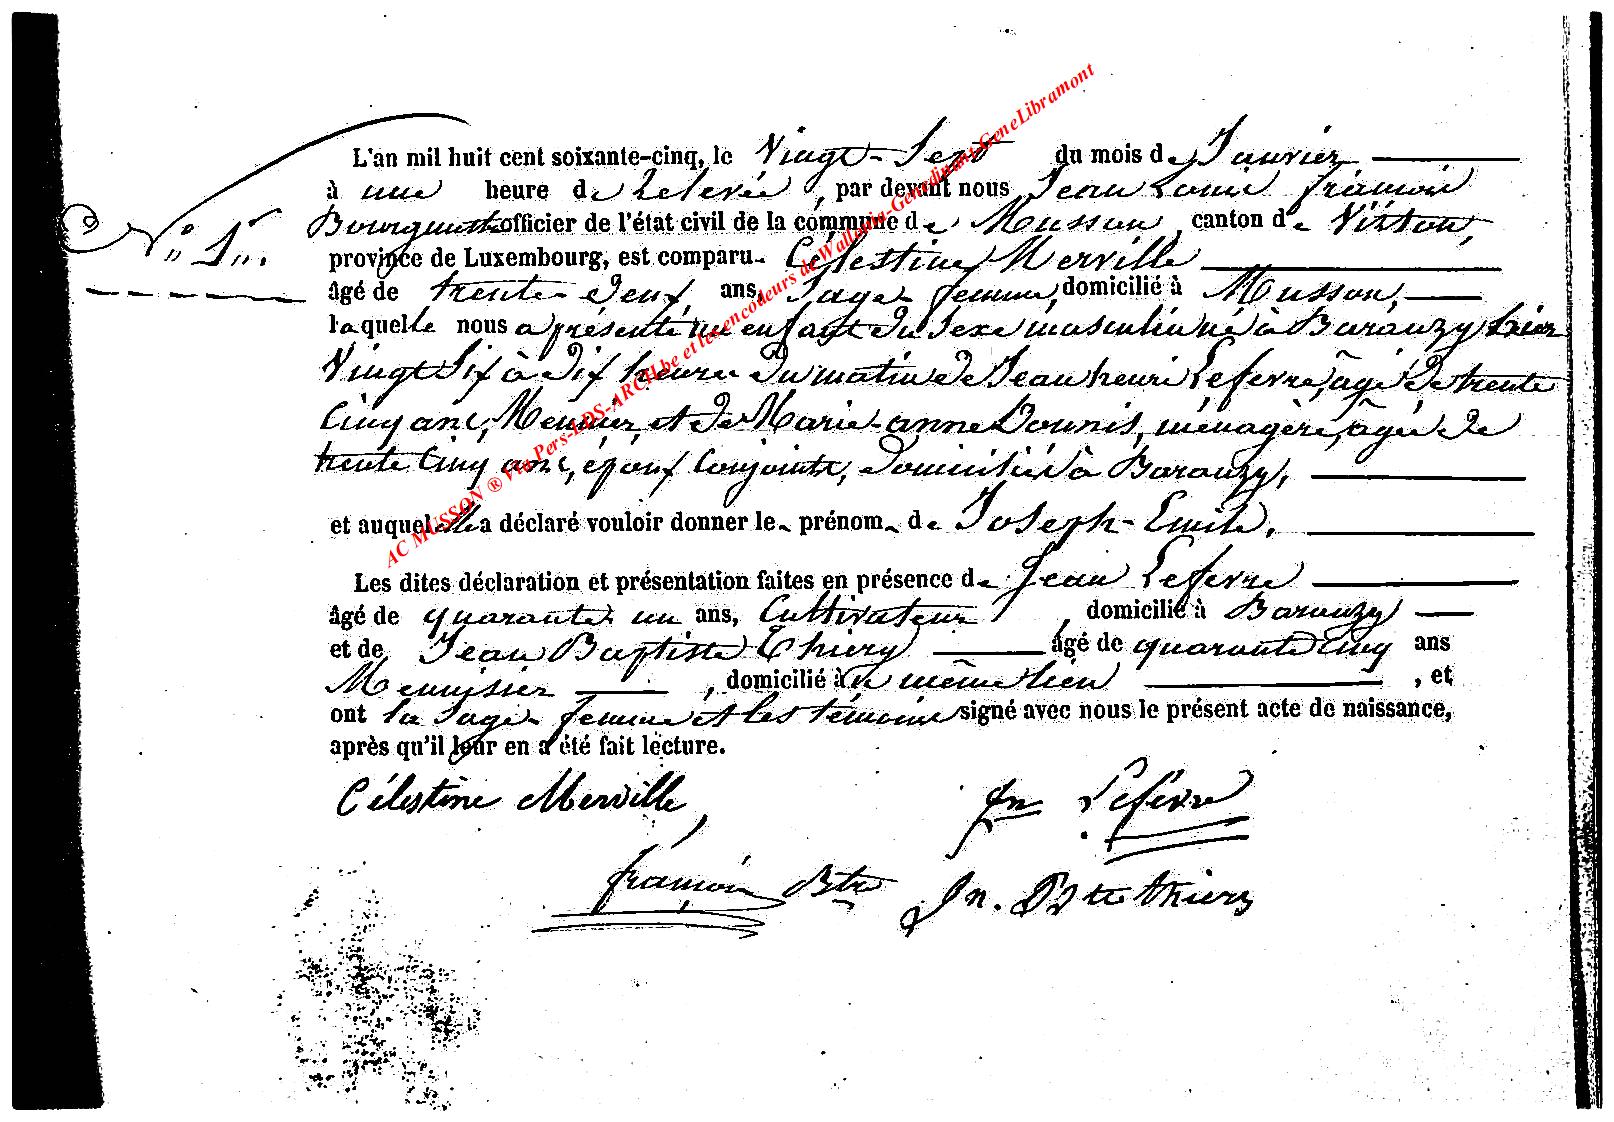 L'an mil huit cent soixante-cinq, le Vingt-Sept du mois de Janvier
à une heure de relevée, par devant nous Jean Louis françois
Bourgmestre officier de l'état civil de la commune de Musson, canton de Virton,
N.° 1er.
province de Luxembourg, est comparu Célestine Merville
âgé de trente-deux ans, Sage-femme, domicilié à Musson,
laquelle nous a présenté un enfant du Sexe masculin né à Baranzy hier
Vingt Six à dix heures du matin de Jean henri Lefevre, âgé de trente
Cinq ans, et de Marie-anne Dounis, ménagère, âgée de
trente Cinq ans, époux Conjoints, domiciliés à Baranzy,
et auquel elle a déclaré vouloir donner le prénom de Joseph-Emile.
Les dites déclaration et présentation faites en présence de Jean Lefevre
âgé de quarante un ans, Cultivateur, domicilié à Baranzy
et de Jean Baptiste Thiery âgé de quarante Cinq ans
Menuisier, domicilié à même lieu, et
ont la Sage-femme et les témoins signé avec nous le présent acte de naissance,
après qu'il leur en a été fait lecture.
Célestine Merville
Jn Lefevre
françois Btre
Jn. Bte thiery
AC MUSSON ® Via Pers-LDS-ARCH.be et les encodeurs de Wallonia-Genedinant-GeneLibramont